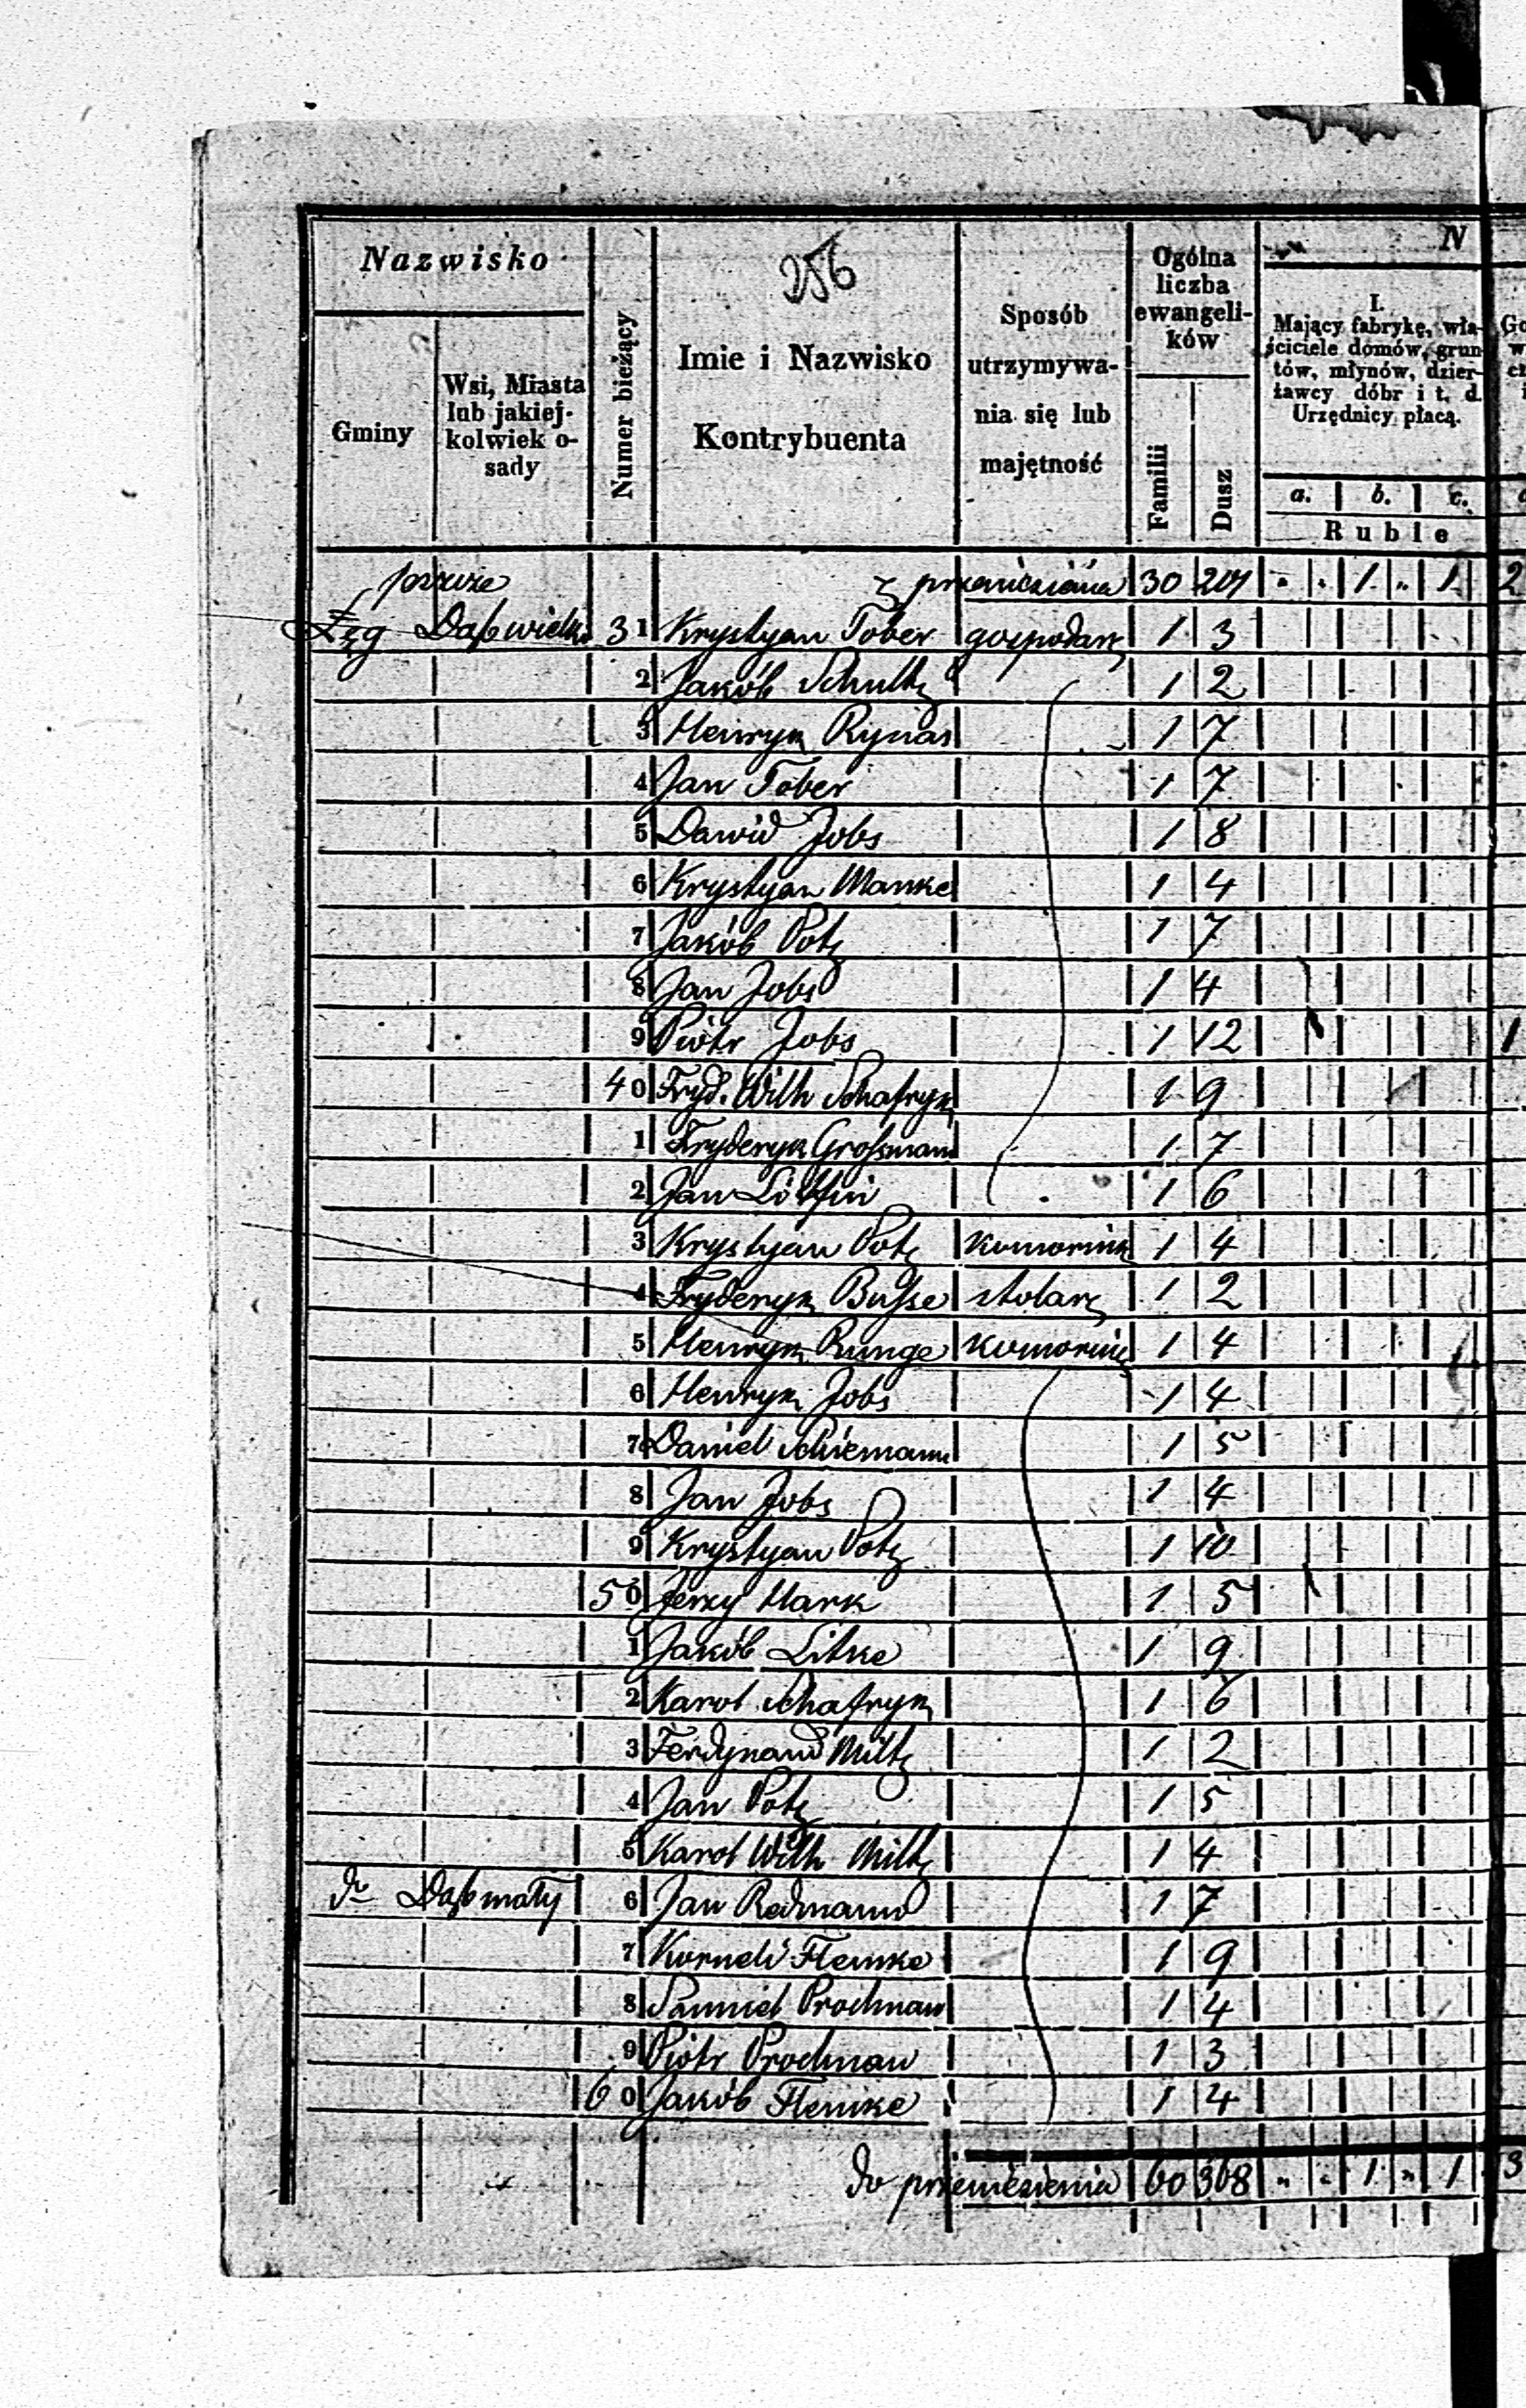 256
Nazwisko
Gminy
Wsi, Miasta
lub jakiej-
kolwiek o-
sady
Numer bieżący
Imie i Nazwisko
Kontrybuenta
Sposób
utrzymywa-
nia się lub
majętność
Ogólna
liczba
ewangeli-
ków
Familii
Dusz
N
I.
Mający fabrykę, wła-
ściciele domów, grun-
tów, młynów, dzier-
żawcy dóbr i t. d.
Urzędnicy płacą.
a. b. c.
Ruble
z przeniesienia 30 201 " " 1 " 1 2
Łęg Dąb wielki 31 Krystyan Tober gospodarz 1 3
2 Jakób Schultz 1 2
3 Henryk Rynas 1 7
4 Jan Tober 1 7
5 Dawid Jobs 1 8
6 Krystyan Manke 1 4
7 Jakób Potz 1 7
8 Jan Jobs 1 4
9 Piotr Jobs 1 12 1
40 Fryd. Wilh Schafryk 1 9
1 Fryderyk Grossmann 1 7
2 Jan 1 6
3 Krystyan Potz komornik 1 4
4 Fryderyk Busse stolarz 1 2
5 Henryk Runge komornik 1 4
6 Henryk Jobs 1 4
7 Daniel Schiemann 1 5
8 Jan Jobs 1 4
9 Krystyan Potz 1 10
50 Jerzy Hark 1 5
1 Jakób Litke 1 9
2 Karol Schafryk 1 6
3 Ferdynand Miltz 1 2
4 Jan Potz 1 5
5 Karol Wilh Miltz 1 4
do Dąb mały 6 Jan Redmann 1 7
7 Korneli Flemke 1 9
8 Samuel Prochnau 1 4
9 Piotr Prochnau 1 3
60 Jakób Flemke 1 4
do przeniesienia 60 368 " " 1 " 1 3